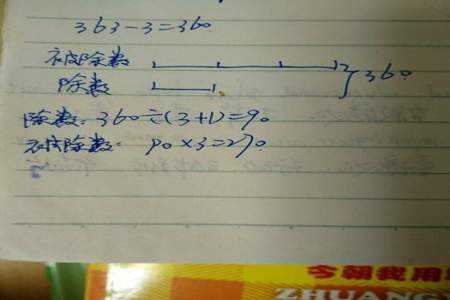 363-3=360
被除数
除数
360
除数: 360÷(3+1)=90
被除数: 90×3=270
今朝我用
ZHUANG